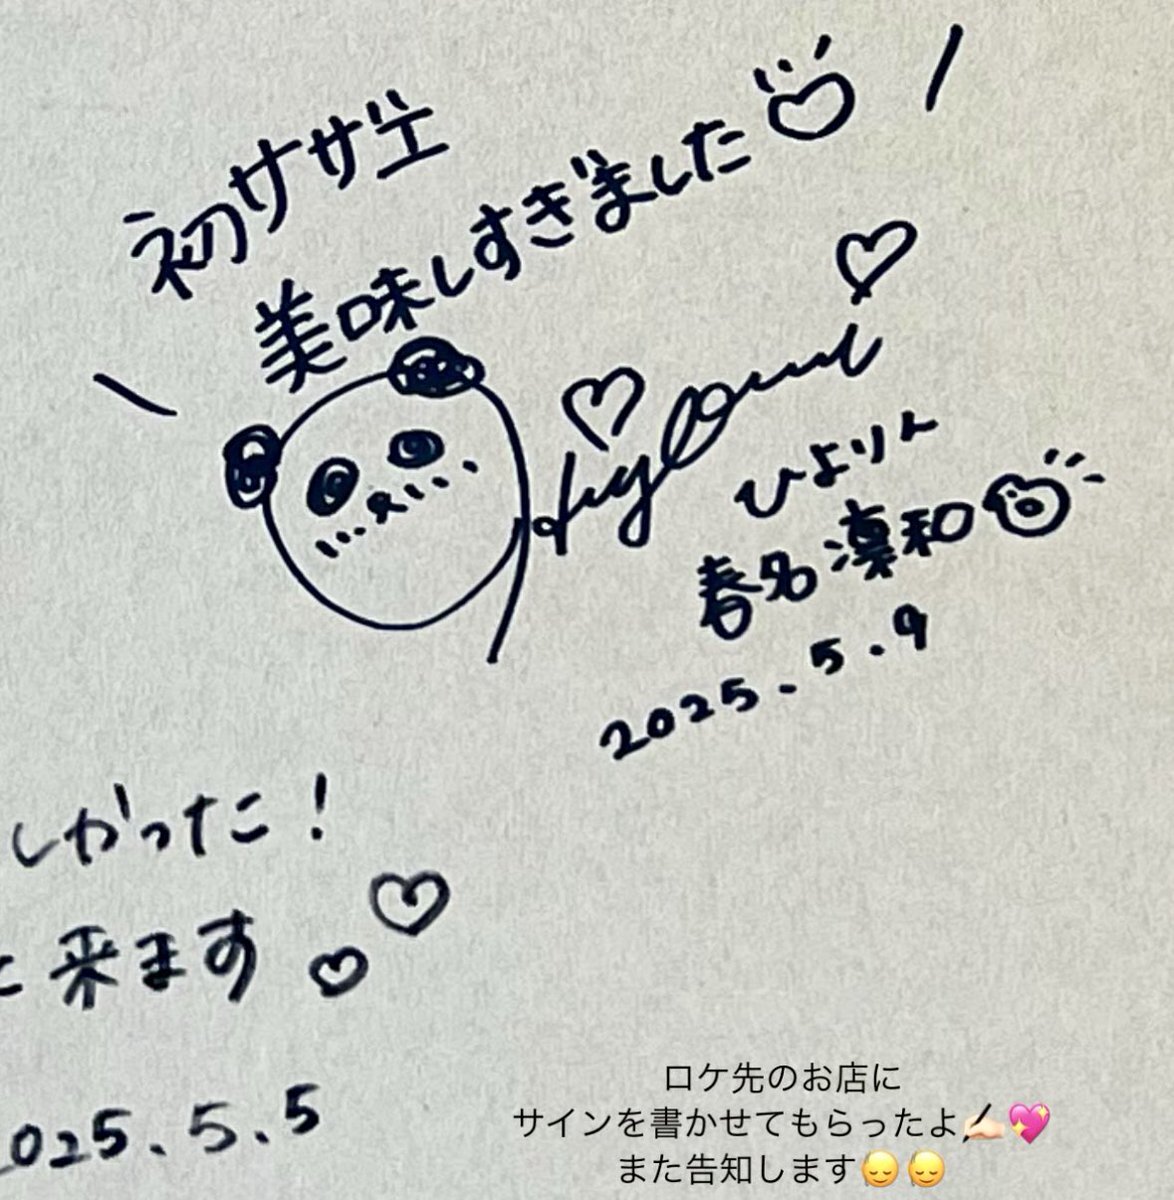 初サザエ
美味しすぎました
ひよりん
春名凛和
2025.5.9
しかった！
に来ます
2025.5.5
ロケ先のお店に
サインを書かせてもらったよ✍🏻💖
また告知します😌😌